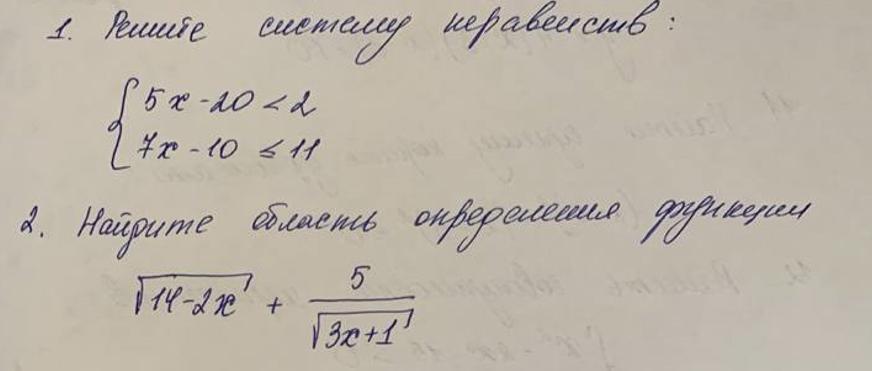 1. Решите систему неравенств:
{ 5x - 20 < 2
7x - 10 ≤ 11
2. Найдите область определения функции
√(14-2x) + 5/√(3x+1)